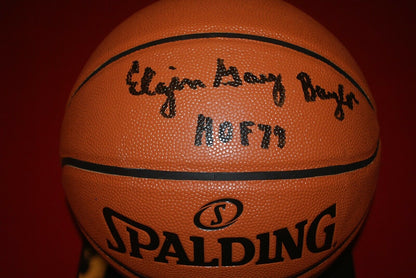 Elgin Gay Baylor
HOF77
S
SPALDING